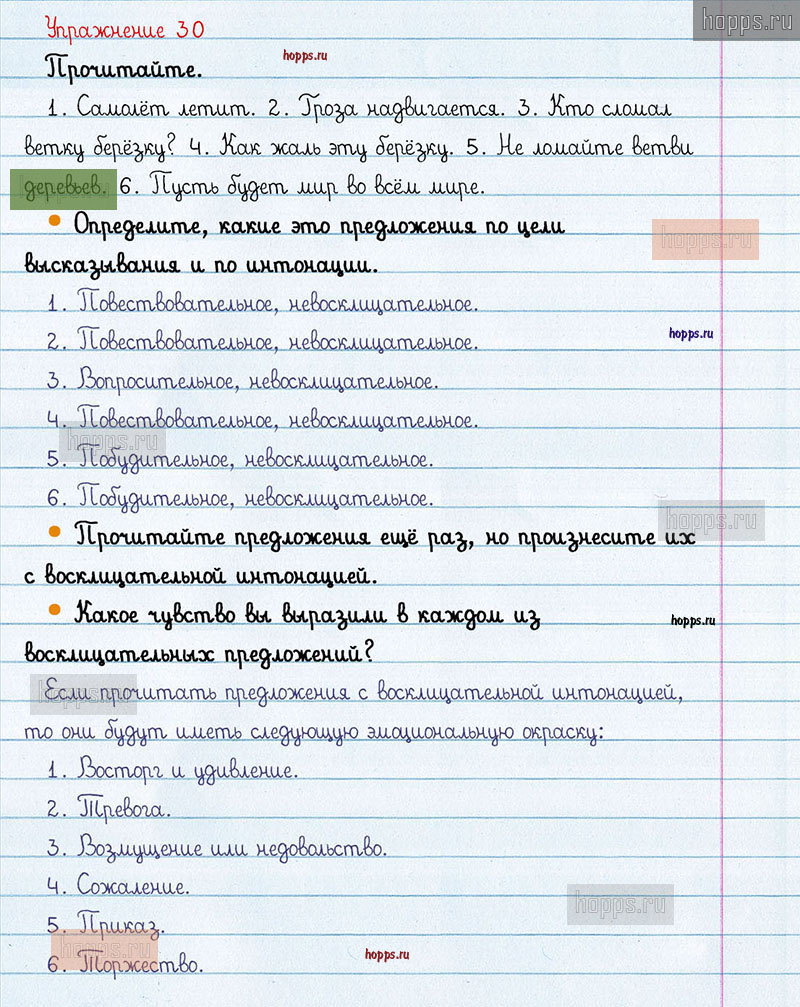 hopps.ru
Упражнение 30
hopps.ru
Прочитайте.
1. Самолёт летит. 2. Гроза надвигается. 3. Кто сломал
ветку берёзку? 4. Как жаль эту берёзку. 5. Не ломайте ветви
деревьев. 6. Пусть будет мир во всём мире.
• Определите, какие это предложения по цели
hopps.ru
высказывания и по интонации.
1. Повествовательное, невосклицательное.
2. Повествовательное, невосклицательное.
hopps.ru
3. Вопросительное, невосклицательное.
4. Повествовательное, невосклицательное.
hopps.ru
5. Побудительное, невосклицательное.
6. Побудительное, невосклицательное.
hopps.ru
• Прочитайте предложения ещё раз, но произнесите их
с восклицательной интонацией.
• Какое чувство вы выразили в каждом из
hopps.ru
восклицательных предложений?
hopps.ru
Если прочитать предложения с восклицательной интонацией,
то они будут иметь следующую эмоциональную окраску:
1. Восторг и удивление.
2. Тревога.
3. Возмущение или недовольство.
4. Сожаление.
hopps.ru
5. Приказ.
hopps.ru
6. Торжество.
hopps.ru